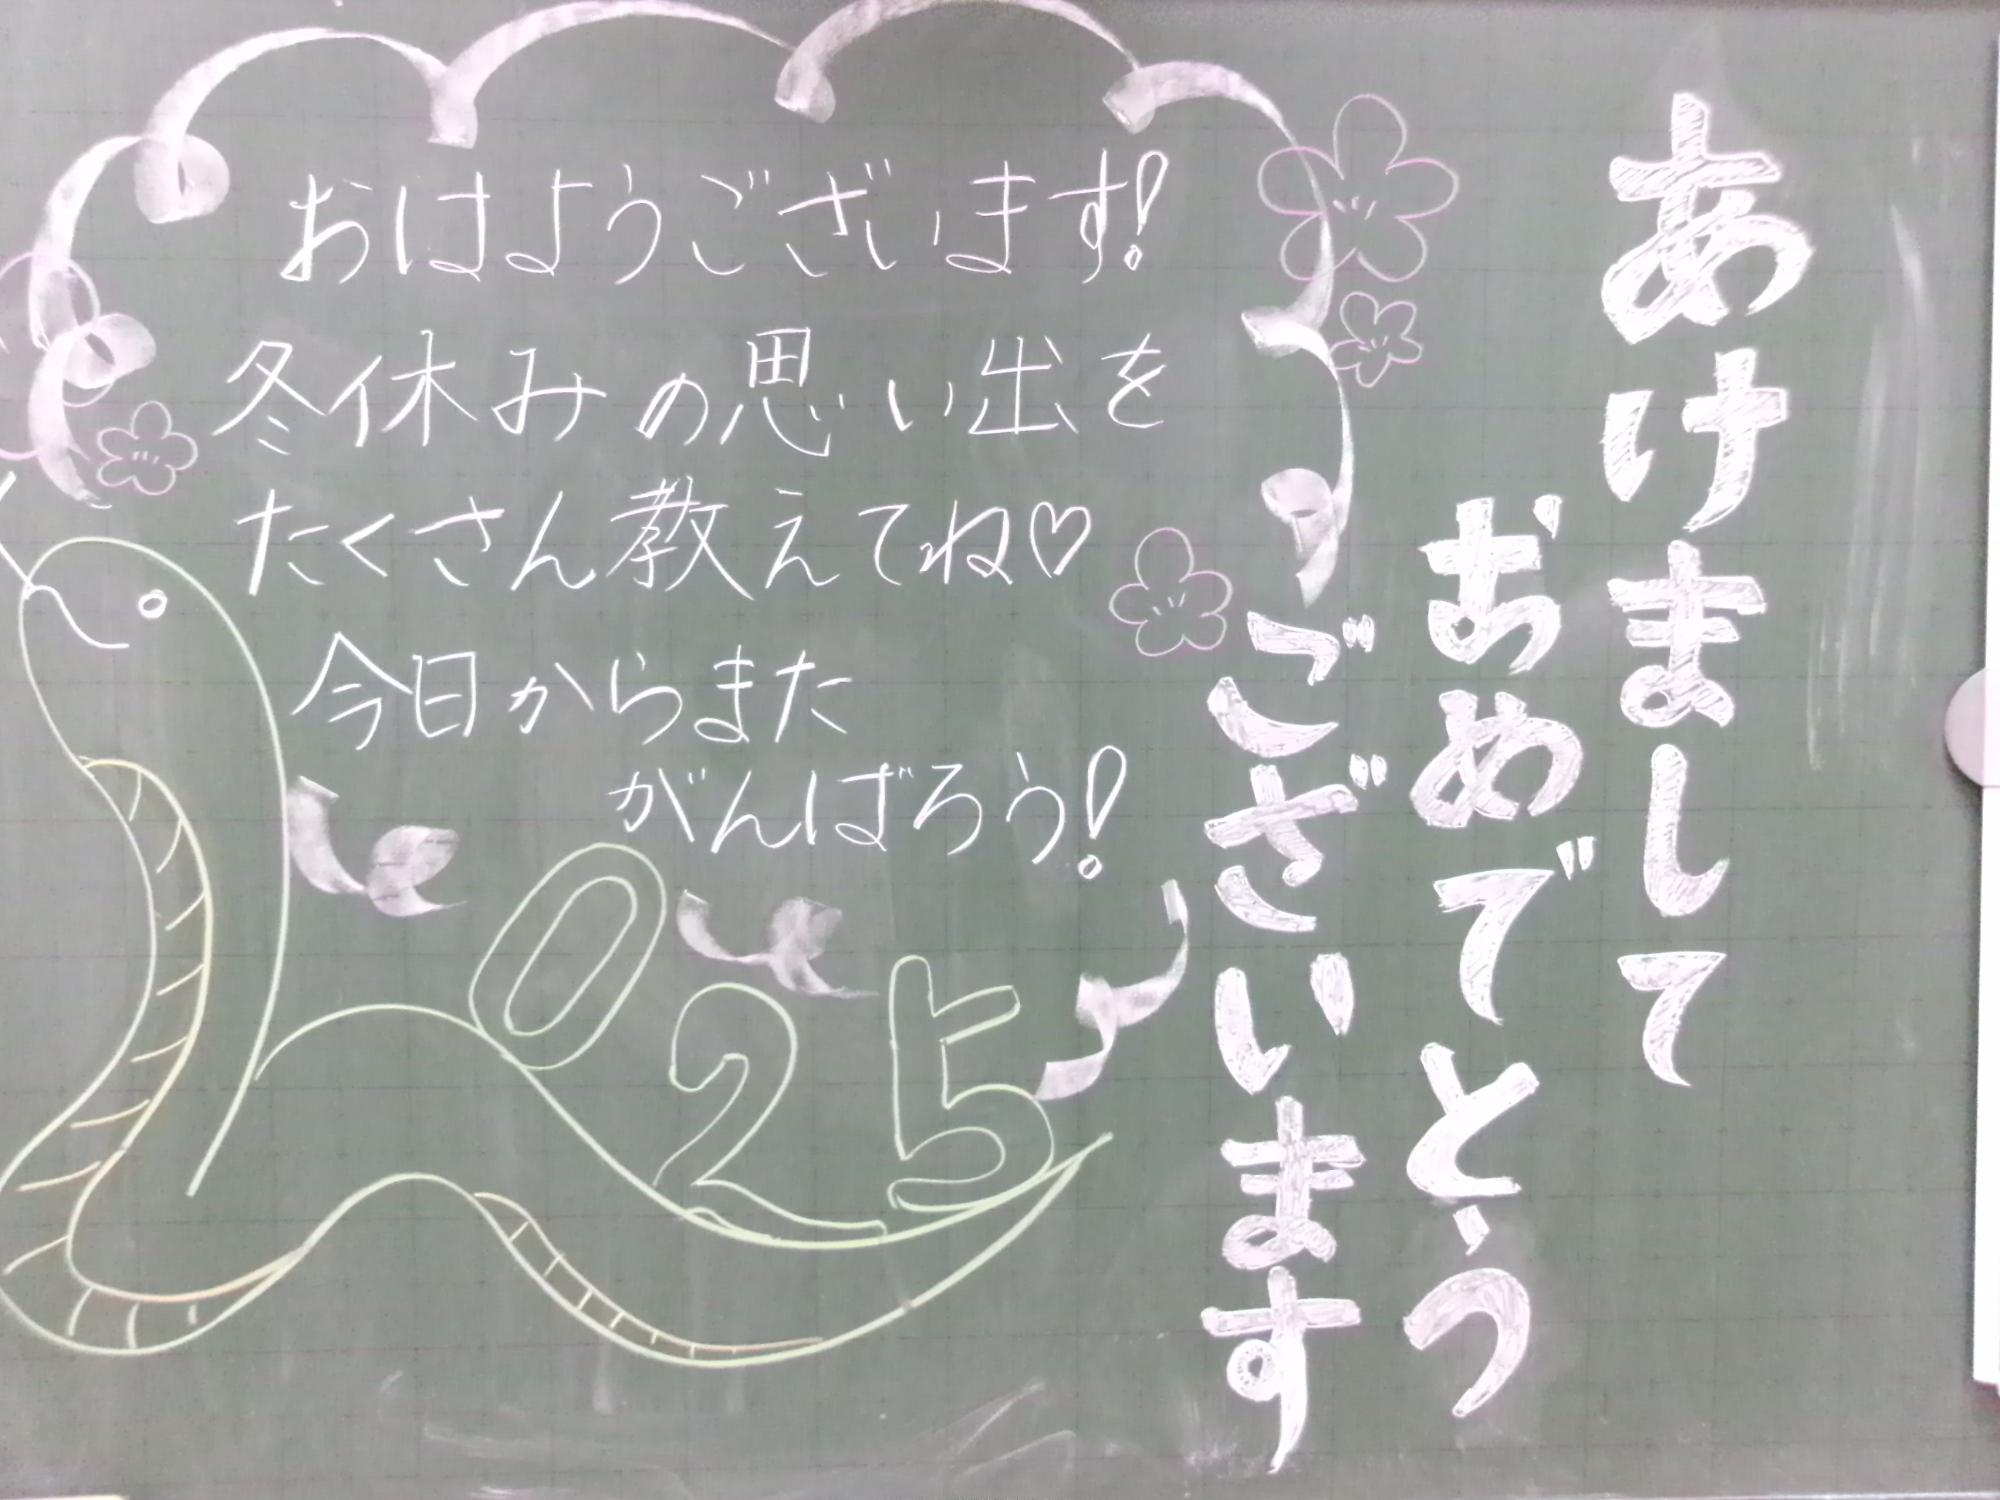 あけまして
おめでとう
ございます
おはようございます!
冬休みの思い出を
たくさん教えてね♡
今日からまた
がんばろう!
025